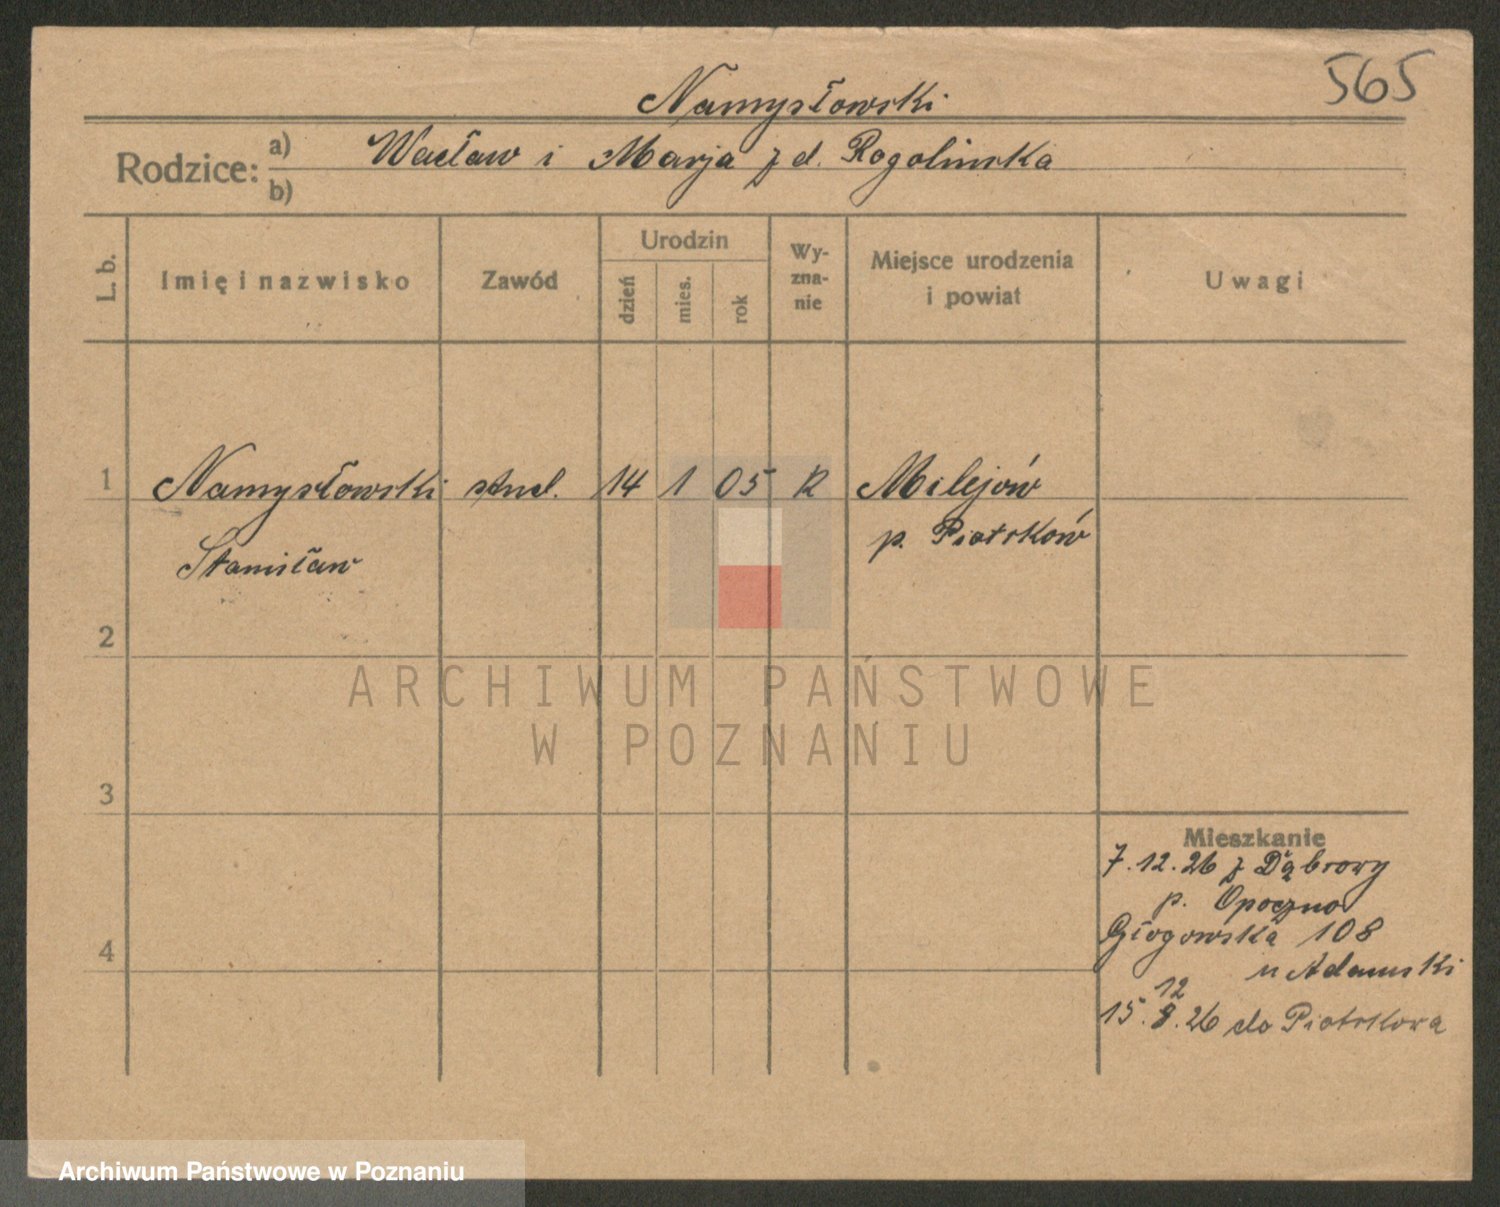 565
Namysłowski
Rodzice: a) Wacław i Marja z d. Rogolinska
b)
L. b. Imię i nazwisko Zawód Urodzin dzień mies. rok Wy-zna-nie Miejsce urodzenia i powiat Uwagi
1 Namysłowski stud. 14 1 05 R Milejów
Stanisław p. Piotrków
2
ARCHIWUM PAŃSTWOWE
W POZNANIU
3
Mieszkanie
7.12.26 z Dąbrowy
p. Opoczno
Głogowska 108
4
u Adamski
12
15.8.26 do Piotrkowa
Archiwum Państwowe w Poznaniu